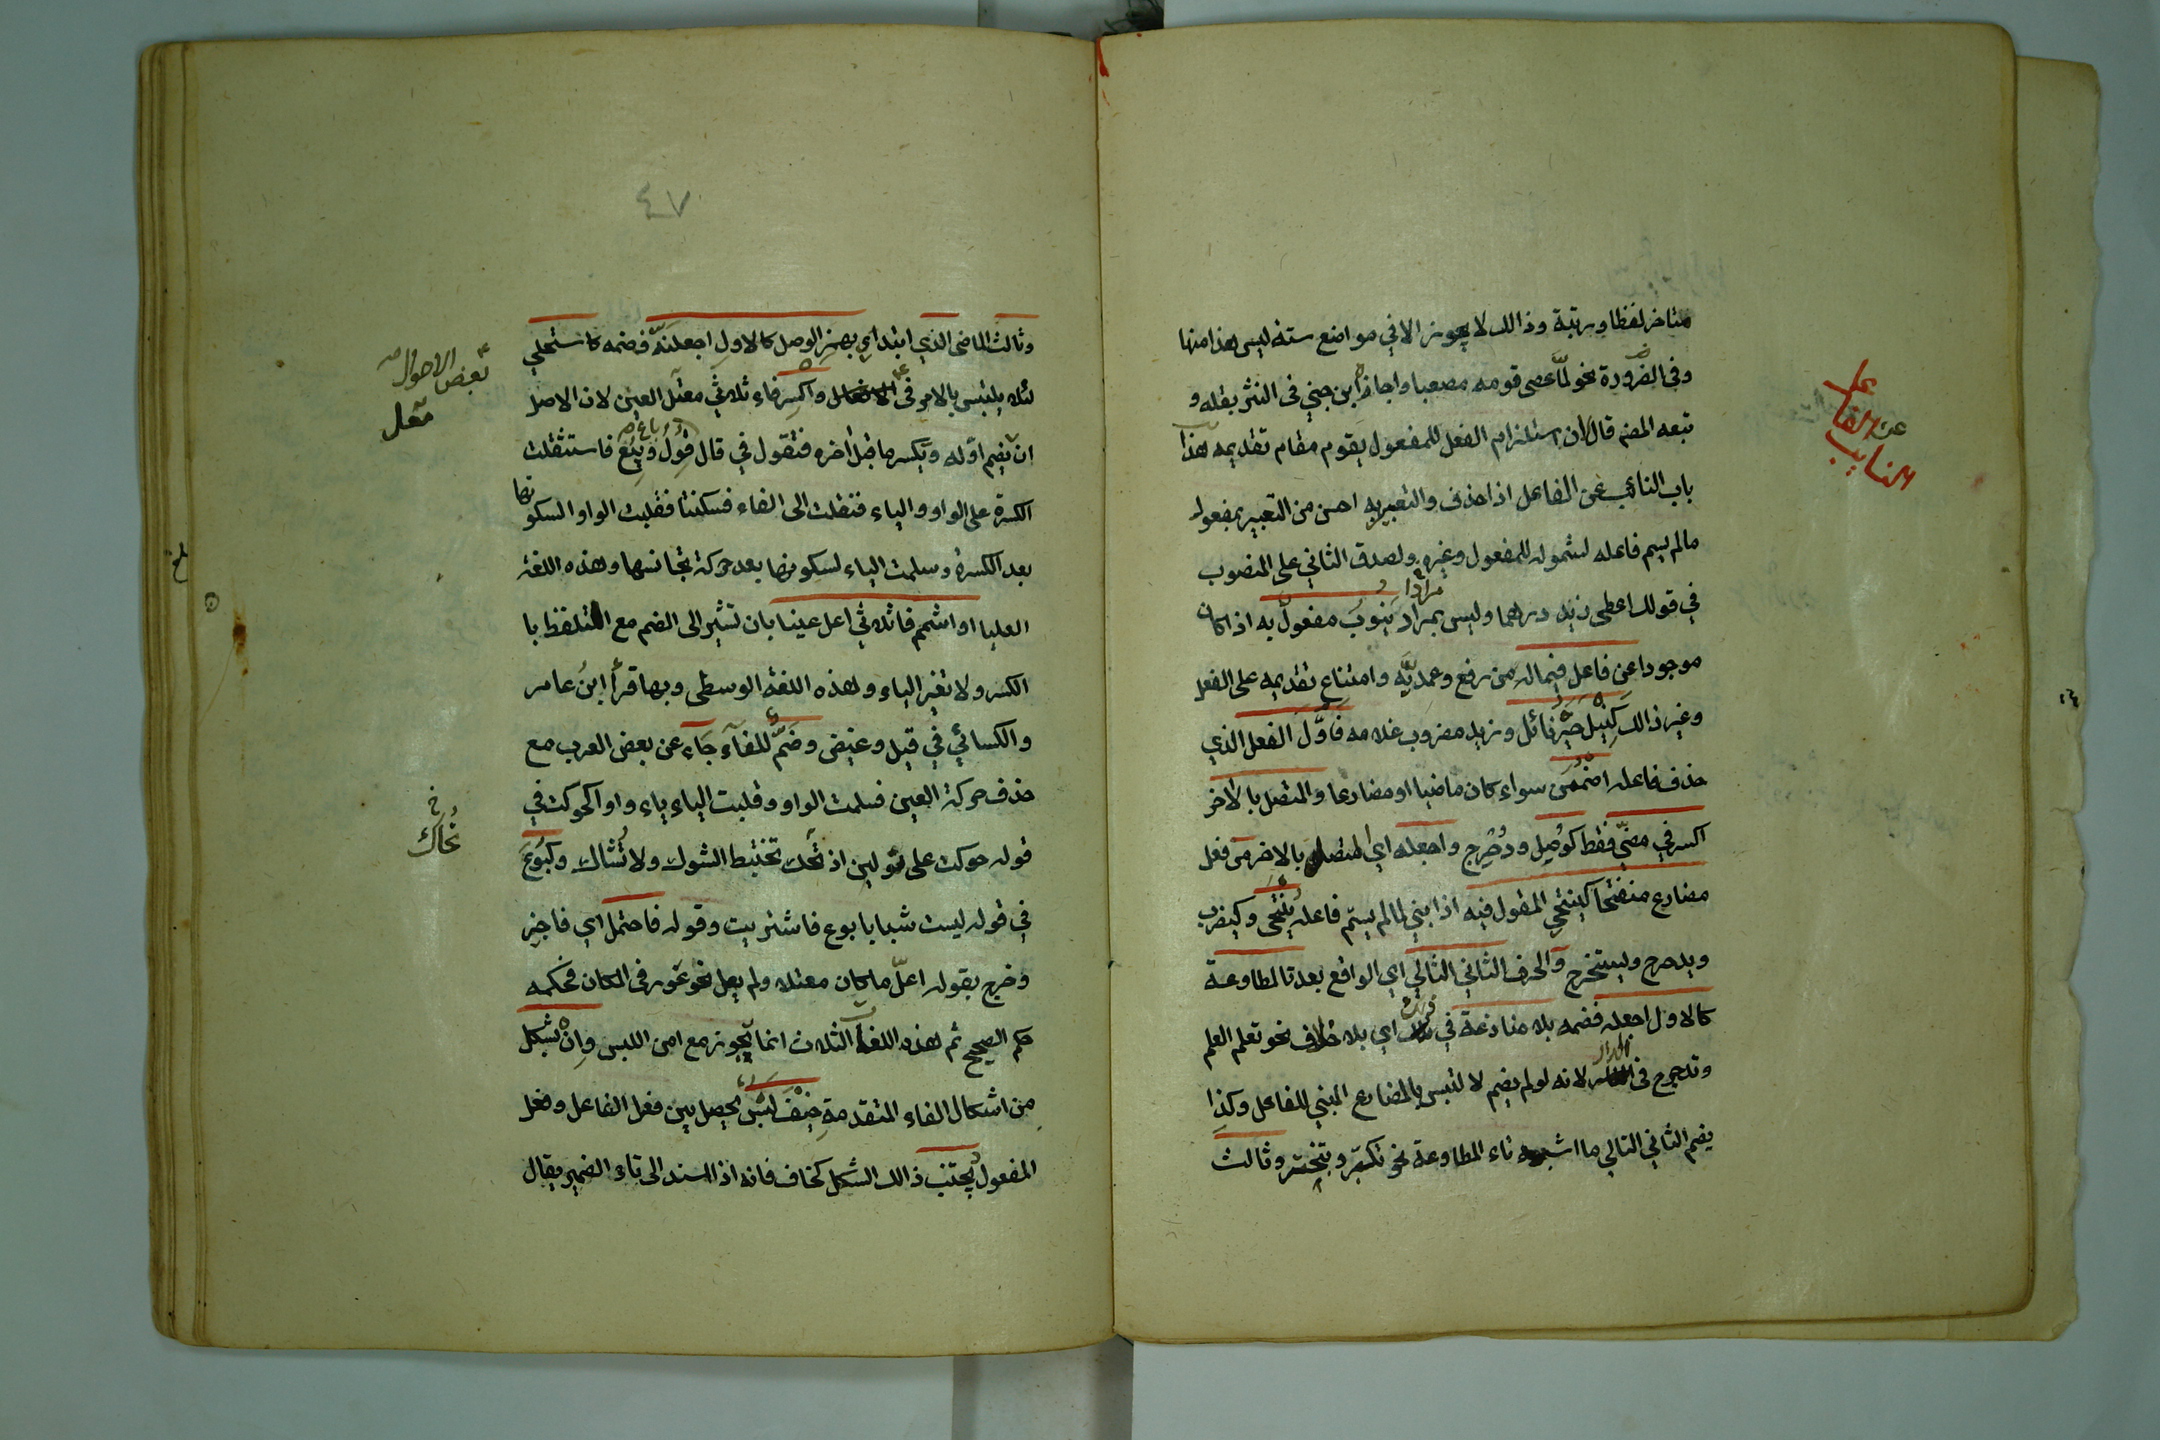 متاخر لفظا ورتبة وذالك لا يجوز الا في مواضع ستة ليس هذا منها
وفي الضرورة نحو لمّا عصى قومه مصعبا واجازه ابن جني في النثر بقلة و
تبعه المص قال لان استلزام الفعل للمفعول يقوم مقام تقديمه هذا
باب النائب عن الفاعل اذا حذف والتعبير به احسن من التعبير بمفعول
مالم يسم فاعله لشموله للمفعول وغيره ولصدق الثاني على المنصوب
في قولك اعطى زيد درهما وليس بمراد مرادا ينوب مفعول به اذا كان
موجودا عن فاعل فيما له من رفع وعمديّة وامتناع تقديمه على الفعل
وغير ذالك كنيل خير نائل وزيد مضروب غلامه فاوّل الفعل الذي
حذف فاعله اضممن سواء كان ماضيا او مضارعا والمتصل بالاخر
اكسر في مضيّ فقط كوُصِل ودُحرِج واجعله اي المتصل بالاخر من فعل
مضارع منفتحا كينتحي المقول فيه اذا بني لمالم يسمّ فاعله يُنتحى وكيضرب
ويدحرج ويستخرج والحرف الثاني التالي اي الواقع بعد تا المطاوعة
كالاول اجعله فضمه بلا منازعة في ذلك اي بلا خلاف نحو تعلم العلم
وتدحرج في الدار لانه لو لم يضم لالتبس بالمضارع المبني للفاعل وكذا
يضم الثاني التالي ما اشبه تاء المطاوعة نحو تكبّر وتبختر وثالث
النايب
عن الفاعل
٤٧
وثالث الماضي الذي ابتدأ بهمز الوصل كالاول اجعلنّه فضمه كاستحلي
لئلا يلتبس بالامر في بعض الاحوال واكسر فاء ثلاثي معتل العين لان الاصل
ان يضم اوّله ويكسر ما قبل اخره فتقول في قال قُوِل وبُيِع فاستثقلت
الكسرة على الواو والياء فنقلت الى الفاء فسكنتا فقلبت الواو لسكونها
بعد الكسرة وسلمت الياء لسكونها بعد حركة تجانسها وهذه اللغة
العليا او اشمم فا ثلاثي اعل عينا بان تشير الى الضم مع التلفظ با
الكسر ولا تغير الياء وهذه اللغة الوسطى وبها قرأ ابن عامر
والكسائي في قيل وغيض وضمّ للفاء جاء عن بعض العرب مع
حذف حركة العين فسلمت الواو وقلبت الياء ياء واوا كحوكت في
قوله حوكت على نولين اذ تحك تختبط الشوك ولا تشاك وكبوع
في قوله ليست شبابا بوع فاشتريت وقوله فاحتمل اي فاجز
وخرج بقوله اعلّ ما كان معتلا ولم يعل نحو عور في المكان فحكمه
حكم الصحيح ثم هذه اللغات الثلاث انما يجوز مع امن اللبس وان بشكل
من اشكال الفاء المتقدمة خيف لبس يحصل بين فعل الفاعل وفعل
المفعول يجتنب ذالك الشكل كخاف فانه اذا اسند الى تاء الضمير يقال
بعض الاحوال
معل
خ
تحاك